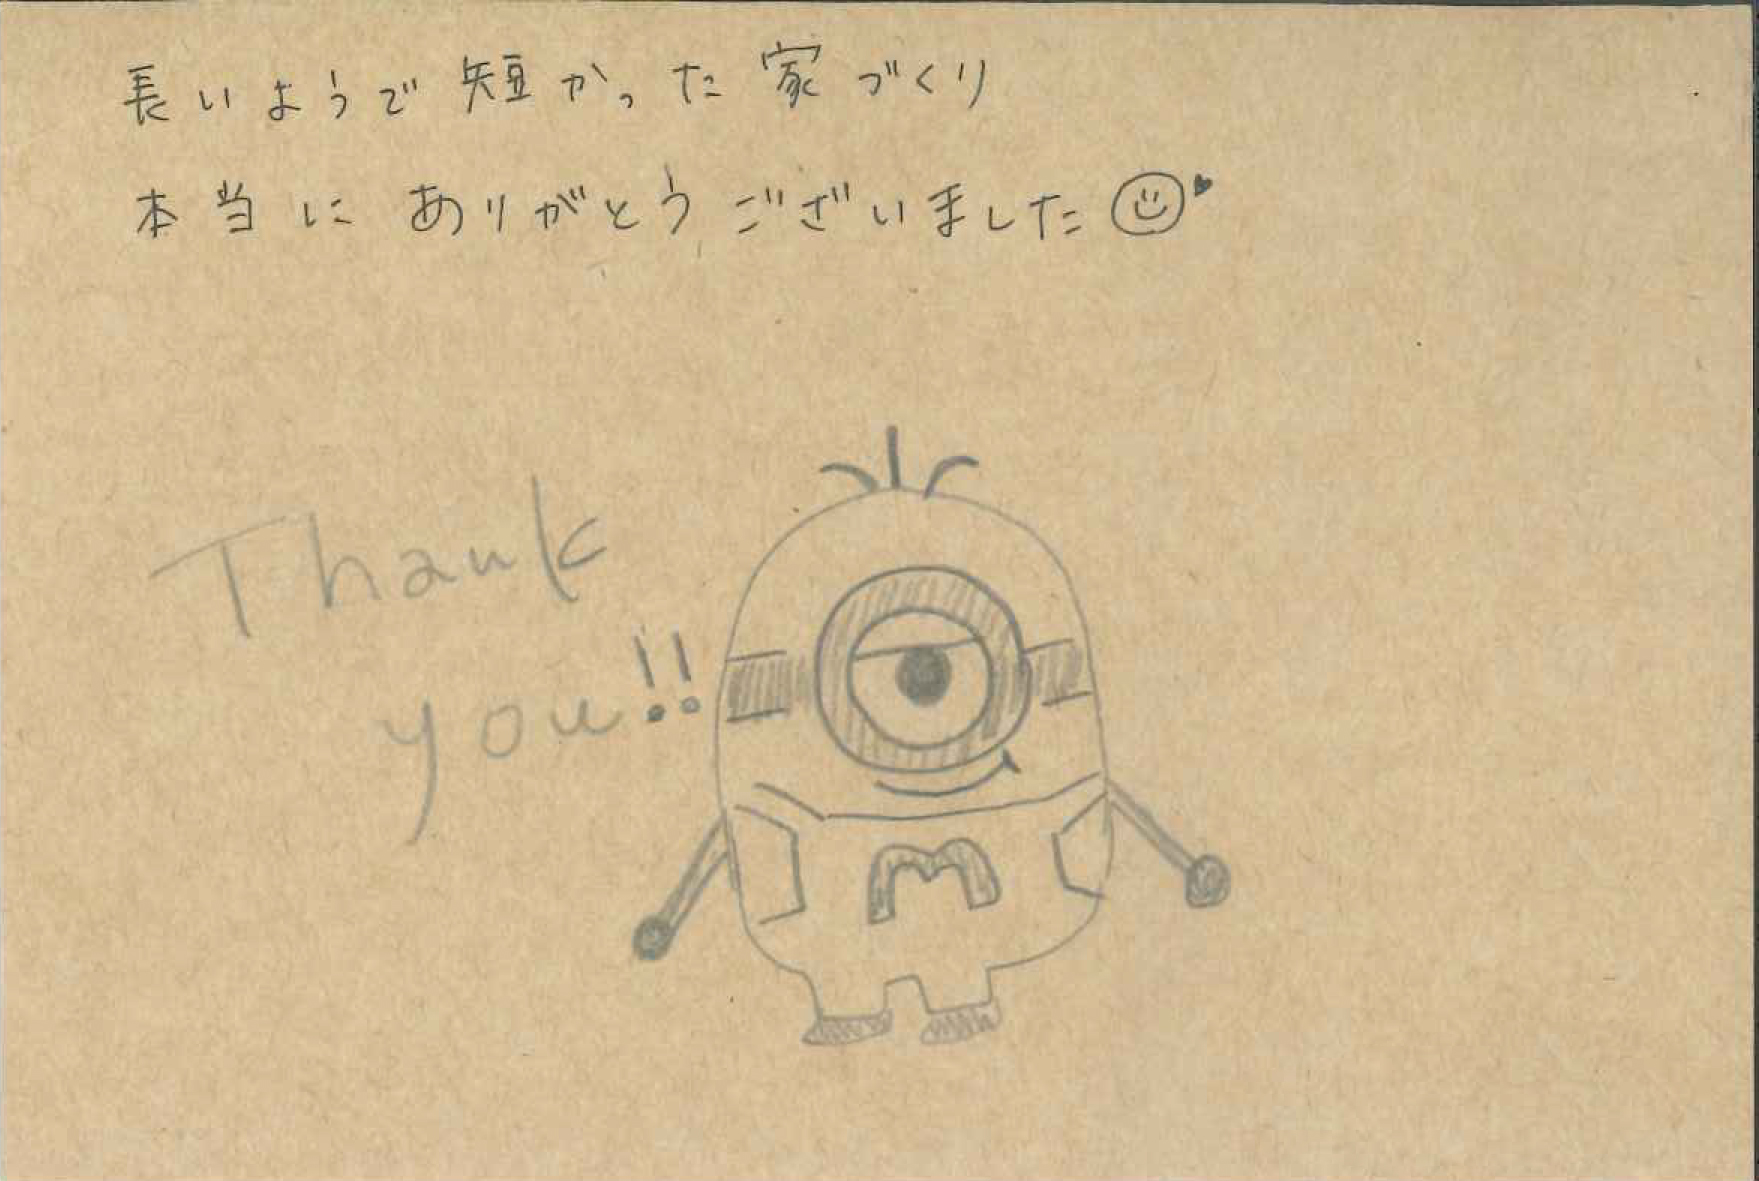 長いようで短かった家づくり
本当にありがとうございました
Thank
you!!
m